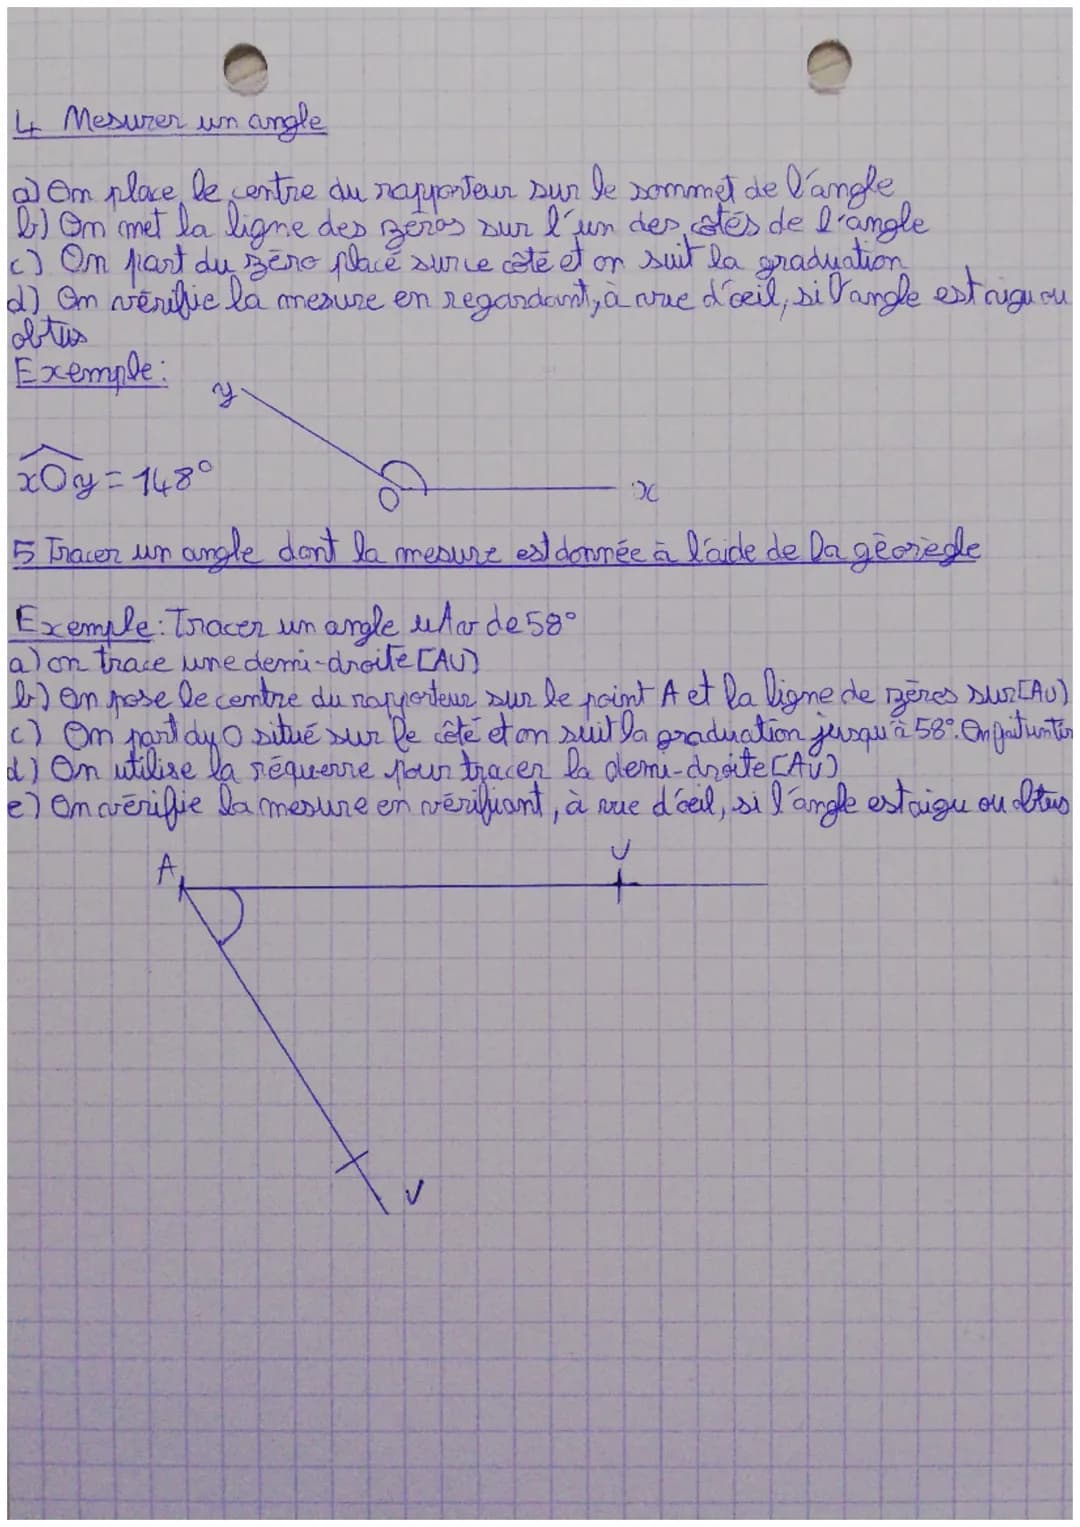 4 Mesurer un angle
a) On place le centre du rapporteur sur le sommet de l'angle
b) On met la ligne des zéros sur l'un des côtés de l'angle
c) On part du zéro placé sur ce côté et on suit la graduation
d) On vérifie la mesure en regardant, à vue d'œil, si l'angle est aigu ou
obtus
Exemple:
y
xOy = 148°
O
x
5 Tracer un angle dont la mesure est donnée à l'aide de la géorègle
Exemple: Tracer un angle uAv de 58°
a) on trace une demi-droite [AU)
b) On pose le centre du rapporteur sur le point A et la ligne de zéros sur [AU)
c) On part du 0 situé sur le côté et on suit la graduation jusqu'à 58°. On fait un
d) On utilise la réquerre pour tracer la demi-droite [AU)
e) On vérifie la mesure en vérifiant, à vue d'œil, si l'angle est aigu ou obtus
U
A
V